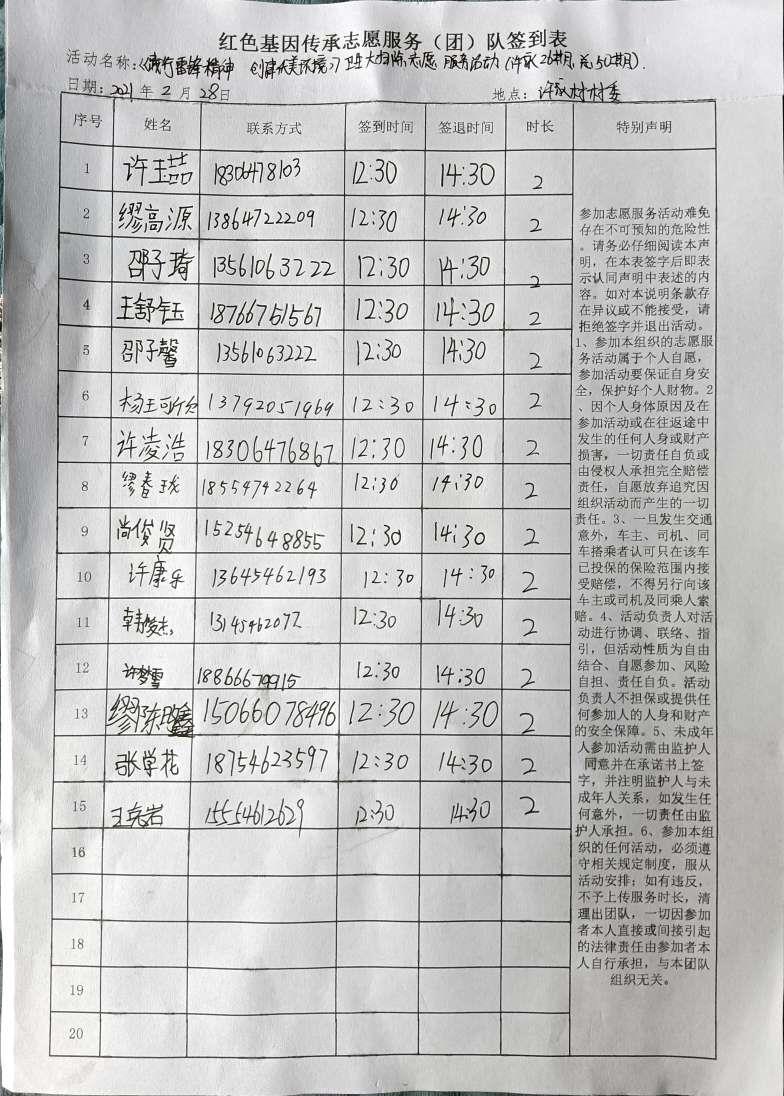 红色基因传承志愿服务（团）队签到表
活动名称：《践行雷锋精神 创建优美环境》大扫除志愿服务活动（许家26期，总50期）.
日期：2021年2月28日 地点：许家村村委
序号 姓名 联系方式 签到时间 签退时间 时长 特别声明
1 许玉喆 18306478103 12:30 14:30 2
2 缪高源 13864722209 12:30 14:30 2
3 邵子琦 13561063222 12:30 14:30 2
4 王舒钰 18766761567 12:30 14:30 2
5 邵子馨 13561063222 12:30 14:30 2
6 杨王可欣 13792051969 12:30 14:30 2
7 许凌浩 18306476867 12:30 14:30 2
8 缪春珑 18554742264 12:30 14:30 2
9 尚俊贤 15254648855 12:30 14:30 2
10 许康乐 13645462193 12:30 14:30 2
11 韩俊杰 13145462077 12:30 14:30 2
12 许梦雪 18866679915 12:30 14:30 2
13 缪陈鑫 15066078496 12:30 14:30 2
14 张学花 18754623597 12:30 14:30 2
15 王亮岩 15554612629 12:30 14:30 2
16
17
18
19
20
参加志愿服务活动难免
存在不可预知的危险性
。请务必仔细阅读本声
明，在本表签字后即表
示认同声明中表述的内
容。如对本说明条款存
在异议或不能接受，请
拒绝签字并退出活动。
1、参加本组织的志愿服
务活动属于个人自愿，
参加活动要保证自身安
全，保护好个人财物。2
、因个人身体原因及在
参加活动或在往返途中
发生的任何人身或财产
损害，一切责任自负或
由侵权人承担完全赔偿
责任，自愿放弃追究因
组织活动而产生的一切
责任。3、一旦发生交通
意外，车主、司机、同
车搭乘者认可只在该车
已投保的保险范围内接
受赔偿，不得另行向该
车主或司机及同乘人索
赔。4、活动负责人对活
动进行协调、联络、指
引，但活动性质为自由
结合、自愿参加、风险
自担、责任自负。活动
负责人不担保或提供任
何参加人的人身和财产
的安全保障。5、未成年
人参加活动需由监护人
同意并在承诺书上签
字，并注明监护人与未
成年人关系，如发生任
何意外，一切责任由监
护人承担。6、参加本组
织的任何活动，必须遵
守相关规定制度，服从
活动安排；如有违反，
不予上传服务时长，清
理出团队，一切因参加
者本人直接或间接引起
的法律责任由参加者本
人自行承担，与本团队
组织无关。